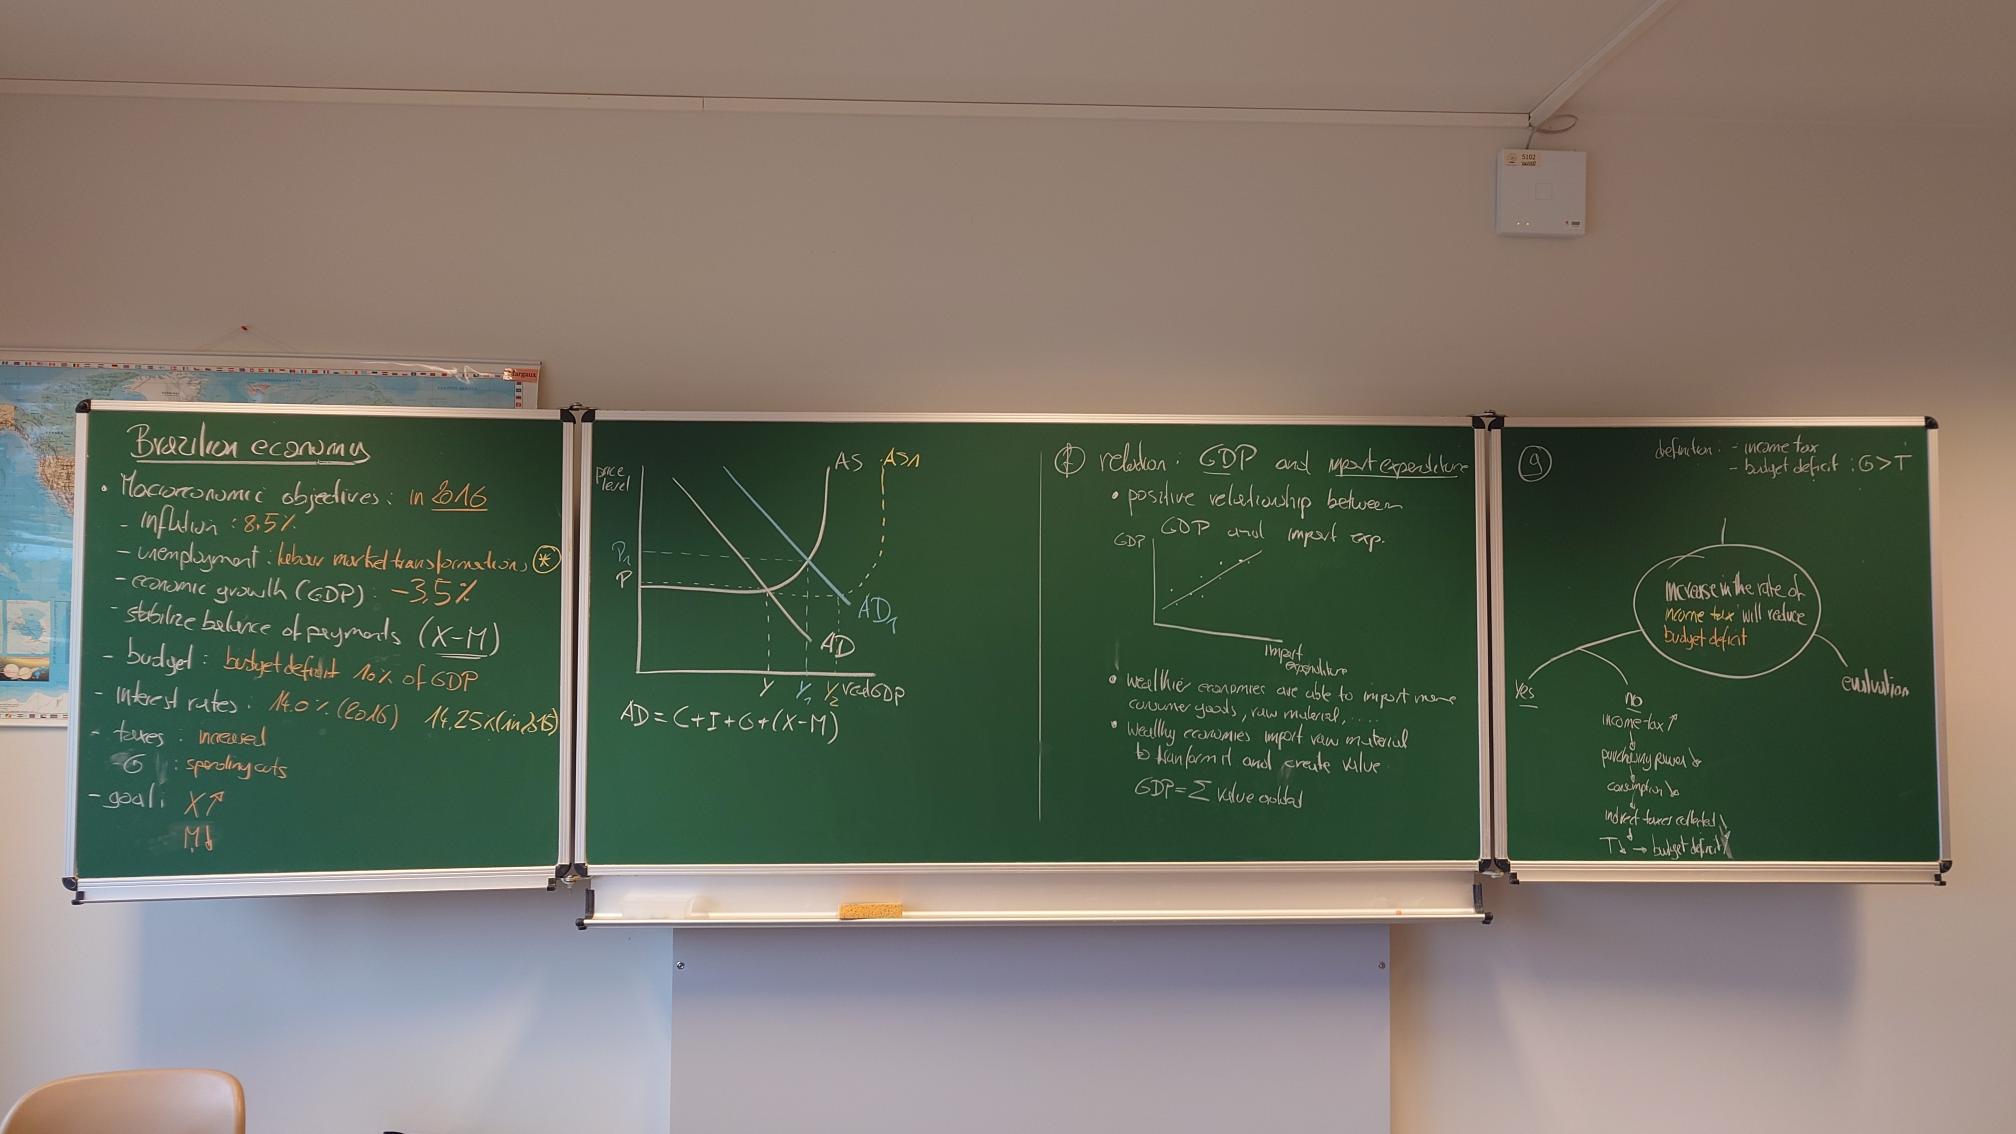 Brazilian economy
• Macroeconomic objectives: in 2016
- inflation : 8,5%
- unemployment : labour market transformations *
- economic growth (GDP) : -3,5%
- stabilize balance of payments (X-M)
- budget : budget deficit 10% of GDP
- interest rates : 14.0% (2016) 14.25% (in 2015)
- taxes : increased
- G : spending cuts
- goal: X↑
M↓
price level
AS AS1
P1
P
AD1
AD
Y Y1 Y2 real GDP
AD = C+I+G+(X-M)
f relation: GDP and import expenditure
• positive relationship between
GDP and import exp.
GDP
import
expenditure
• wealthier economies are able to import more
consumer goods, raw material, ....
• wealthy economies import raw material
to tranform it and create value
GDP = Σ value added
g
definition: - income tax
- budget deficit : G>T
increase in the rate of
income tax will reduce
budget deficit
yes
no
evaluation
income tax ↑
↓
purchasing power ↓
↓
consumption ↓
↓
indirect taxes collected ↓
↓
T↓ → budget deficit ↑
5102